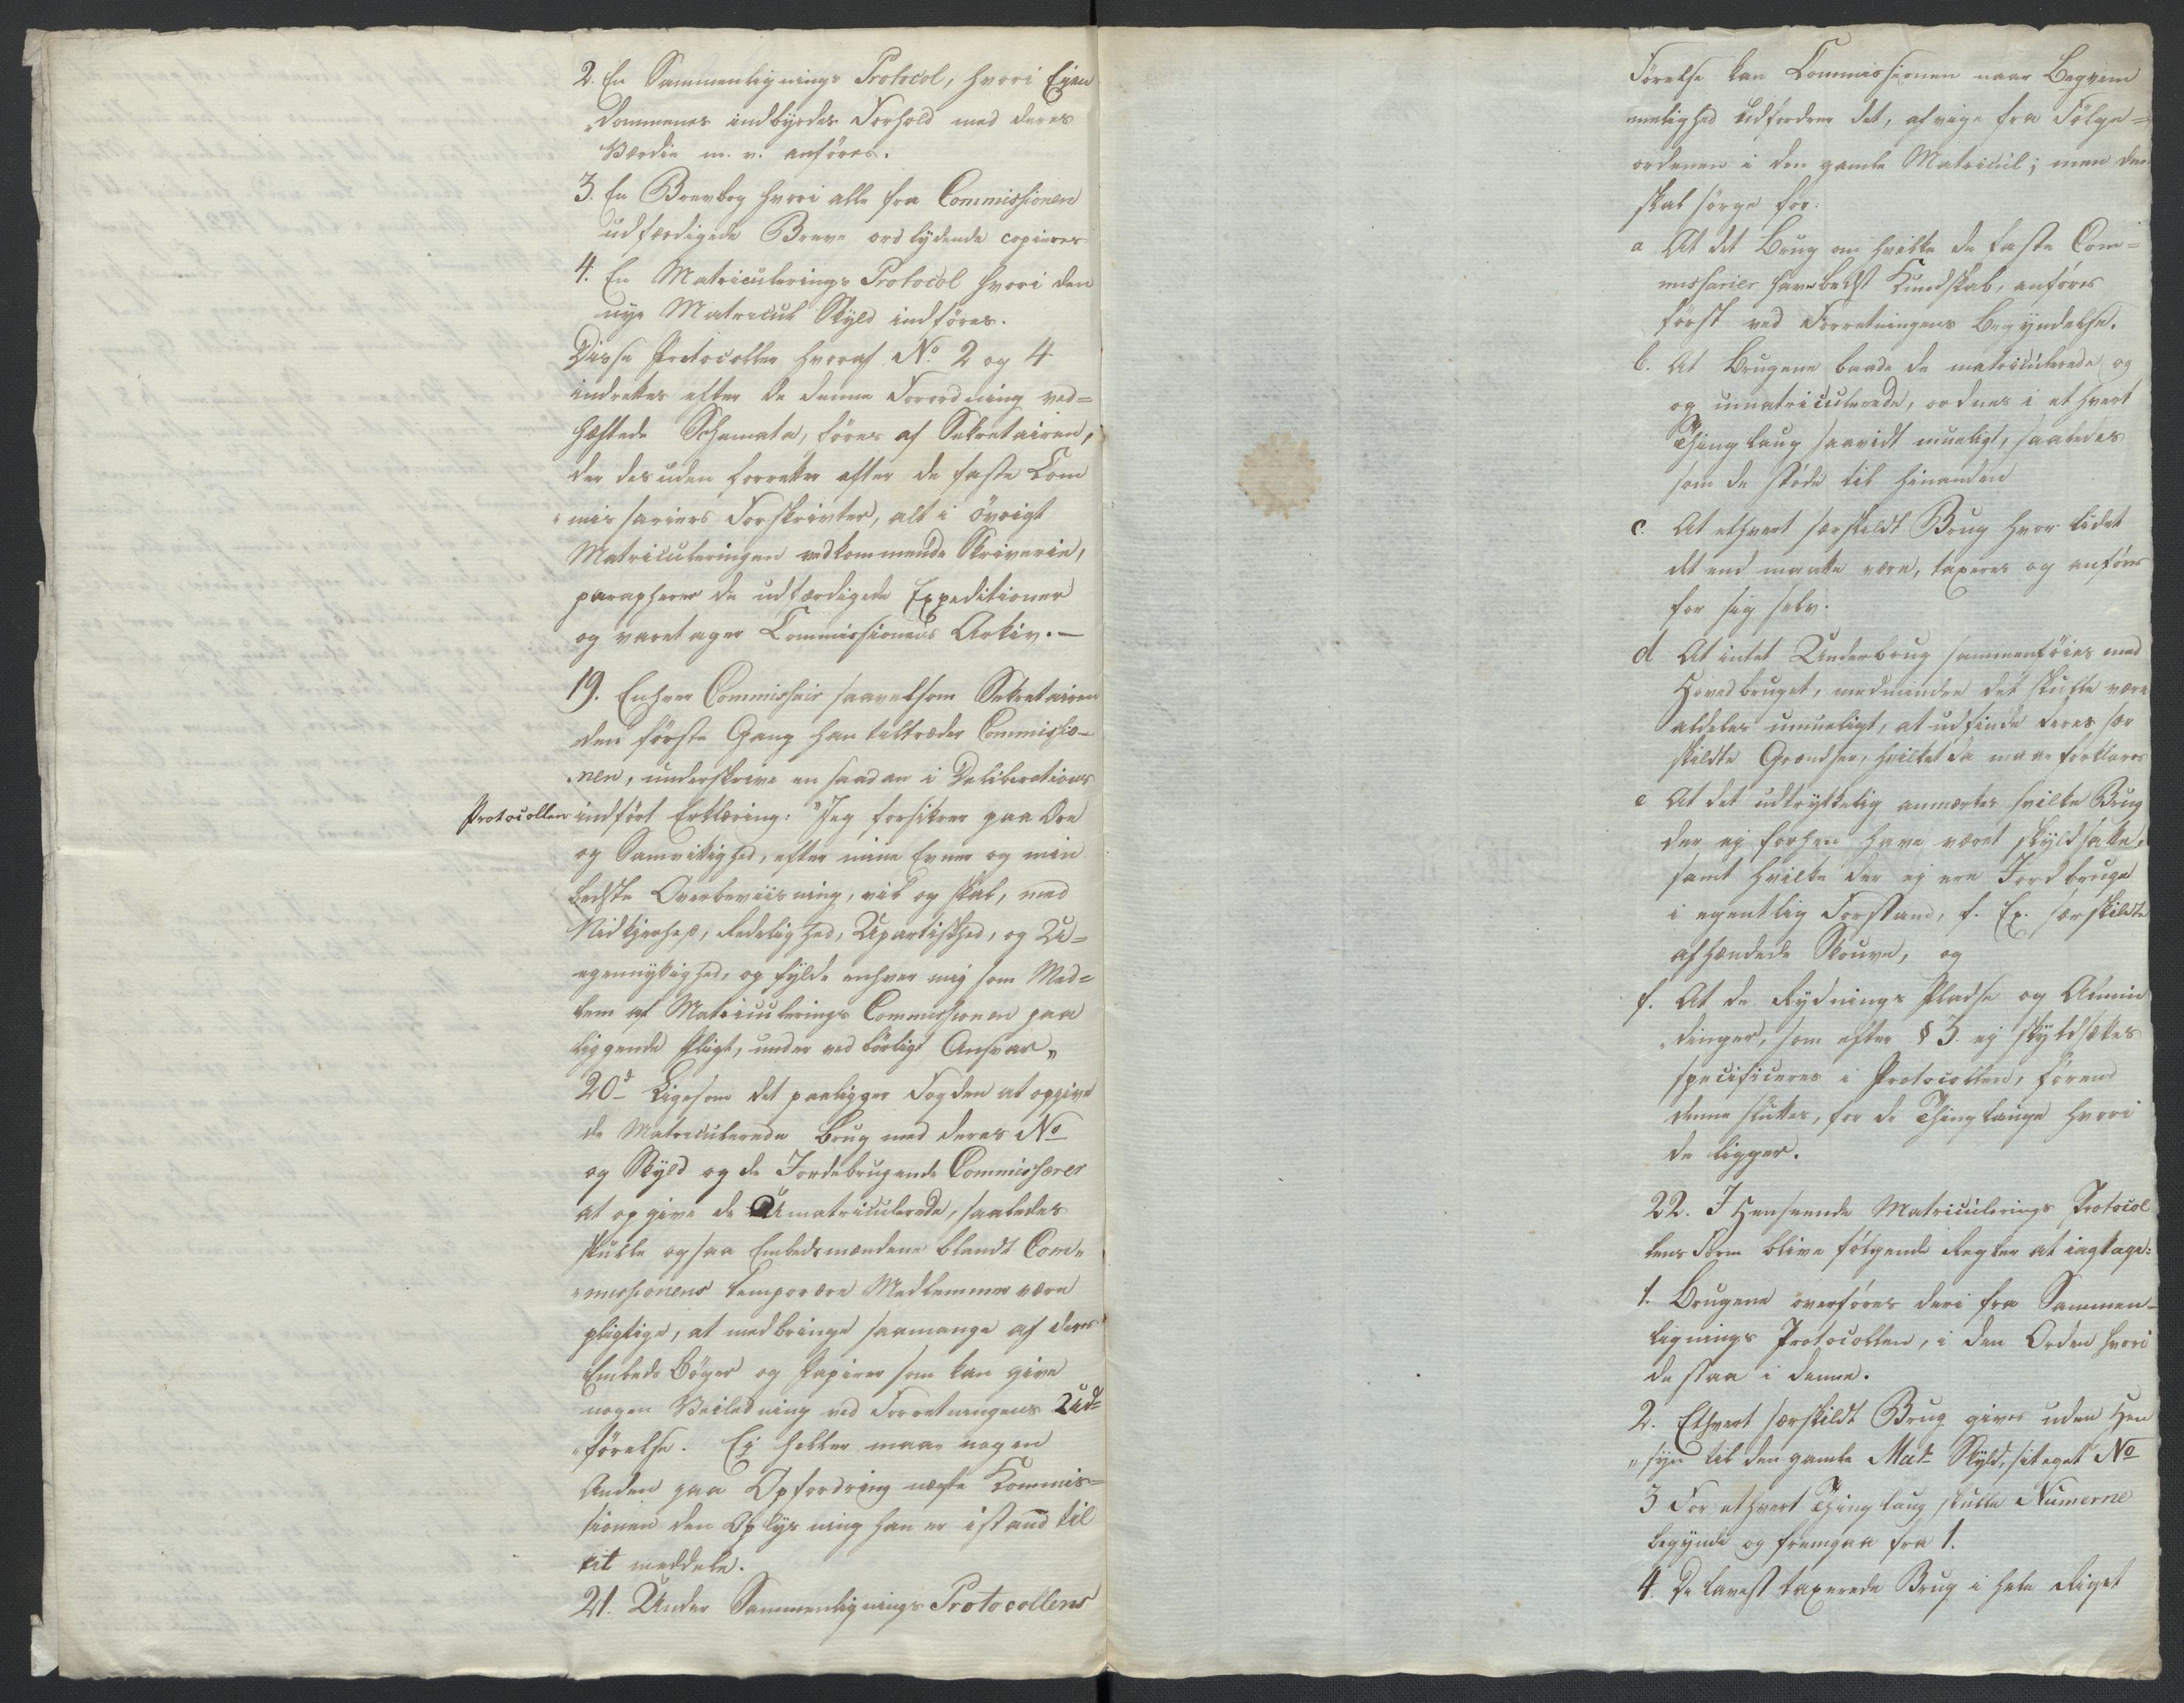 2. En Sammenlignings Protocol, hvori Eien
„dommenes indbyrdes Forhold med deres
Værdie m. v. anföres.
3. En Brevbog hvori alle fra Commissionen
udfærdigede Breve ordlydende copieres
4. En Matriculerings Protocol hvori den
nye Matricul Skyld indföres.
Disse Protocoller hvoraf No. 2 og 4
indrettes efter de denne Forordning ved=
hæftede Schemata, föres af Sekretairen,
der desuden forretter efter de faste Com
„missariers Forskrivter, alt i övrigt
Matriculeringen vedkommende Skriverie,
parapherer de udfærdigede Expeditioner
og varetager Commissionens Arkiv. –
19. Enhver Commissair saavelsom Sekretairen
den förste Gang han tiltræder Commissio-
„nen, underskrive en saadan i Deliberations
Protocollen indfört Erklæring: "Jeg forsikrer paa Ære
og Samvittighed, efter mine Evner og min
bedste Overbeviisning, vil og skal, med
Nidkjerhed, Redelighed, Upartiskhed, og U=
egennyttighed, opfylde enhver mig som Med=
lem af Matriculerings Commissionen paa
liggende Pligt, under ved börligt Ansvar„
20d Ligesom det paaligger Fogden at opgive
de Matriculerede Brug med deres No
og Skyld og de Jordebrugende Commissærer
at opgive de Umatriculerede, saaledes
skulle ogsaa Embedsmændene blandt Com„
„missionens temporære Medlemmer være
pligtige, at medbringe saamange af deres
Embeds Böger og Papirer som kan give
nogen Veiledning ved Forretningens Ud=
„förelse. Ej heller maae nogen
Anden paa Opfordring nægte Kommis=
sionen den Oplysning han er istand til
at meddele.
21. Under Sammenlignings Protocollens
Förelse kan Commissionen naar Beqvem
melighed udfordrer det, afvige fra Fölge=
ordenen i den gamle Matricul; men den
skal sörge for:
a At det Brug om hvilke de faste Com=
missarier have bedst Kundskab, anföres
först ved Forretningens Begyndelse.
b. At Brugene baade de matriculerede og
og umatriculerede, ordnes i ethvert
Thinglaug saavidt mueligt, saaledes
som de stöde til hinanden
c. At ethvert særskildt Brug hvor lidet
det end maatte være, taxeres og anföres
for sig selv.
d At intet Underbrug sammenföies med
Hovedbruget, medmindre det skulle være
aldeles umueligt, at udfinde deres sær
skildte Grændser, hvilket da maae forklares
e At det udtrykkelig anmærkes hvilke Brug
der ej forhen have været skyldsatte,
samt hvilke der ej ere Jordbruge
i egentlig Forstand, f. Ex. særskildte
afhændede Skouve, og
f. At de Rydnings Pladse og Almin
„dinger, som efter § 3. ej skyldsættes
specificeres i Protocollen, förend
denne sluttes, for de Thinglauge hvori
de ligger.
22. I Henseende Matriculerings Protocol
lens Form blive fölgende Regler at iagttage:
1. Brugene overföres deri fra Sammen-
lignings Protocollen, i den Orden hvori
de staa i denne.
2. Ethvert særskildt Brug gives uden Hen
„syn til den gamle Mat. Skyld, sit eget No
3 For ethvert Thinglaug skulle Numerne
begynde og fremgaa fra 1.
4. De lavest taxerede Brug i hele Riget